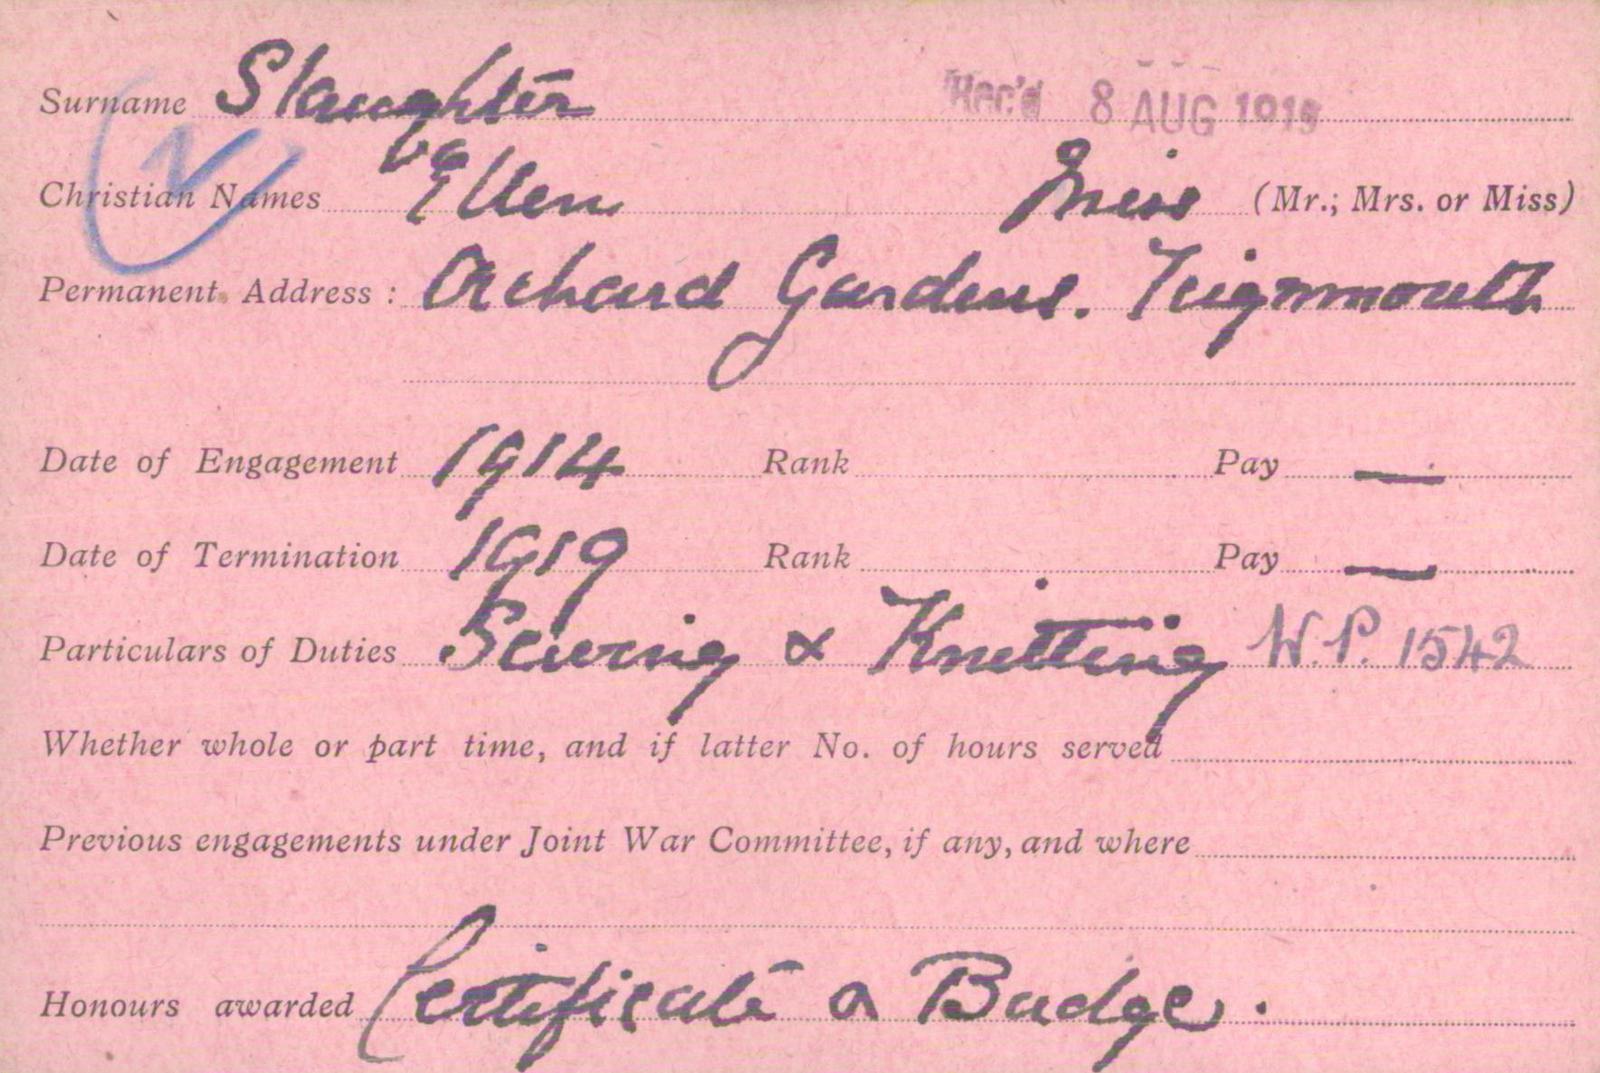 Surname Slaughter Rec'd 8 AUG 1919
Christian Names Ellen Miss (Mr.; Mrs. or Miss)
Permanent Address : Orchard Gardens. Teignmouth
Date of Engagement 1914 Rank Pay —
Date of Termination 1919 Rank Pay —
Particulars of Duties Sewing & Knitting W.P. 1542
Whether whole or part time, and if latter No. of hours served
Previous engagements under Joint War Committee, if any, and where
Honours awarded Certificate & Badge.